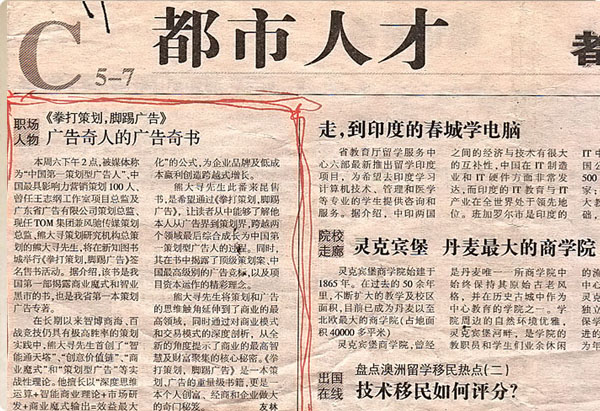 C
5-7
都市人才
都
职场
人物
《拳打策划,脚踢广告》
广告奇人的广告奇书
本周六下午2点,被媒体称
为“中国第一策划型广告人”、中
国最具影响力营销策划100人、
曾任王志纲工作室项目总监及
广东省广告有限公司策划总监、
现任TOM集团兼风驰传媒策划
总监,熊大寻风暴研究机构策划
的熊大寻先生,将在新知图书
城举行《拳打策划,脚踢广告》签
名售书活动。据介绍,该书是我
国第一部揭露商业魔式和智业
黑市的书,也是我省第一本策划
广告专著。
在长期以来智博商海,百
战竞技仍具有极高胜率的策划
实践中,熊大寻先生首创了“智
能通天塔”、“创意价值链”、“商
业魔式”和“策划型广告”等实
战性理论。他擅长以“深度思维
运算+智能商业理论+市场研
发+商业魔式输出=效益最大
化”的公式,为企业品牌及低成
本赢利创造跨越式增长。
熊大寻先生此番来昆售
书,是希望通过《拳打策划,脚踢
广告》,让读者从中能够了解他
本人从广告界到策划界,跨越两
个领域最后综合成长为中国第
一策划型广告人的过程。同时,
其在书中揭露了顶级策划案、中
国最高级别的广告竞标,以及项
目资本运作的精彩理念。
熊大寻先生将策划和广告
的思维触角延伸到了商业的最
高领域,同时通过对商业模式
和交易模式的深度剖析,从全
新的角度提示了商业的最高智
慧及财富聚集的核心秘密。《拳
打策划,脚踢广告》是一本策
划、广告的重量级书籍,更是一
本个人创富、经商和企业做大
的奇门秘笈。
友林
走,到印度的春城学电脑
省教育厅留学服务中
心六部最新推出留学印度
项目,为希望去印度学习
计算机技术、管理和医学
等专业的学生提供咨询和
服务。据介绍,中印两国
之间的经济与技术有很大
的互补性,中国在IT制造
业和IT硬件方面非常发
达,而印度的IT教育与IT
产业在全世界处于领先地
位。班加罗尔市是印度的
院校
走廊
灵克宾堡 丹麦最大的商学院
灵克宾堡商学院始建于
1865年。在过去的50余年
里,不断扩大的教学及校区
面积,目前已成为丹麦以至
北欧最大的商学院(占地面
积40000多平米)
灵克宾堡商学院,曾经
是丹麦唯一所商学院中
始终保持其原始古老风
格,并在历史古城中作为
中心教育的学院之一。学
院周边的自然环境优雅,
灵克宾堡河畔,是学院的
教职员和学生们业余休闲
出国
在线
盘点澳洲留学移民热点(二)
技术移民如何评分?